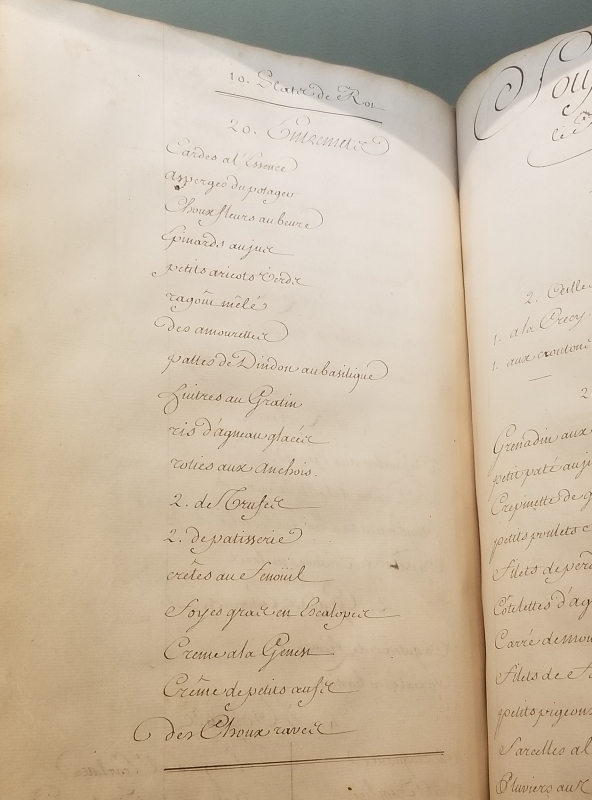 10. Plats de Roi
20. Entremets
Cardes a l'Essence
asperges du potager
Choux fleurs au beure
Epinards au jus
petits aricots Verds
ragoût mêlé
des amourettes
pattes de Dindon au basilique
huitres au Gratin
ris d'agneau glacés
roties aux anchois.
2. de Trufes
2. de patisserie
crêtes au fenoüil
foyes gras en Escalopes
Creme a la Genest
Crême de petits aufs
des Choux raves
2.
1. a la Crecy
1. aux croutons
2
Grenadin aux
petit paté au j
Crepinette de
petits poulets
Filets de
Côtelettes d'ag
Carré de mou
Filets de
petits pigeons
Sarcelles a l
Pluviers aux